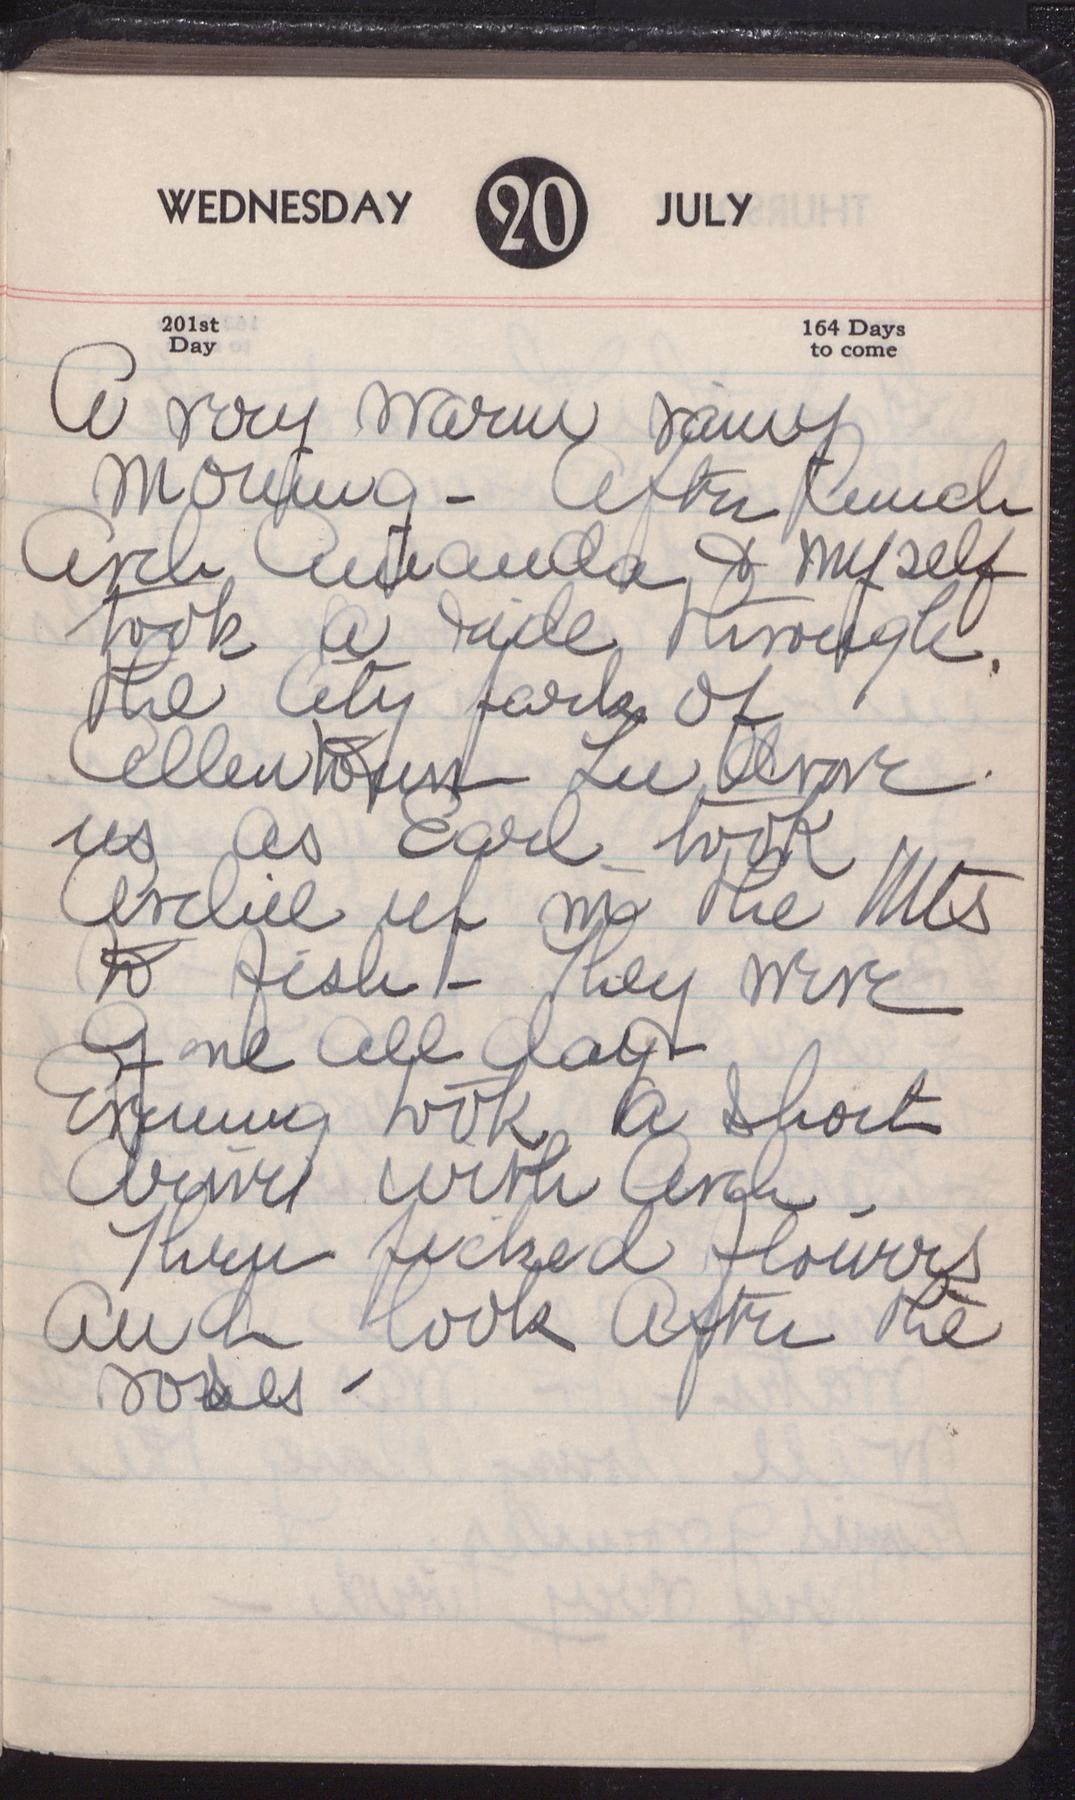 WEDNESDAY 20 JULY
201st Day
164 Days to come
A very warm rainy
morning - After Lunch
Arch Amanda & myself
took a ride through
the City park of
Allentown Lee drove
us as Earl took
Archie up in the Mts
to fish - They were
gone all day -
Evening took a short
with Arch -
Then picked flowers
and look after the
roses -